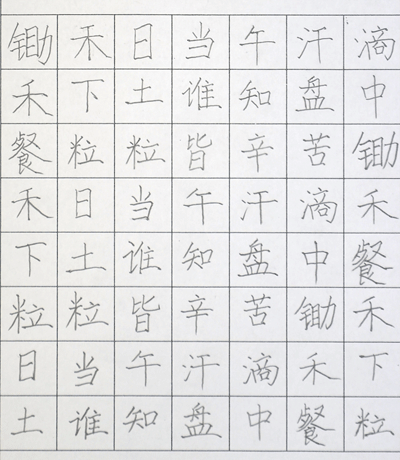 锄禾日当午汗滴
禾下土谁知盘中
餐粒粒皆辛苦锄
禾日当午汗滴禾
下土谁知盘中餐
粒粒皆辛苦锄禾
日当午汗滴禾下
土谁知盘中餐粒